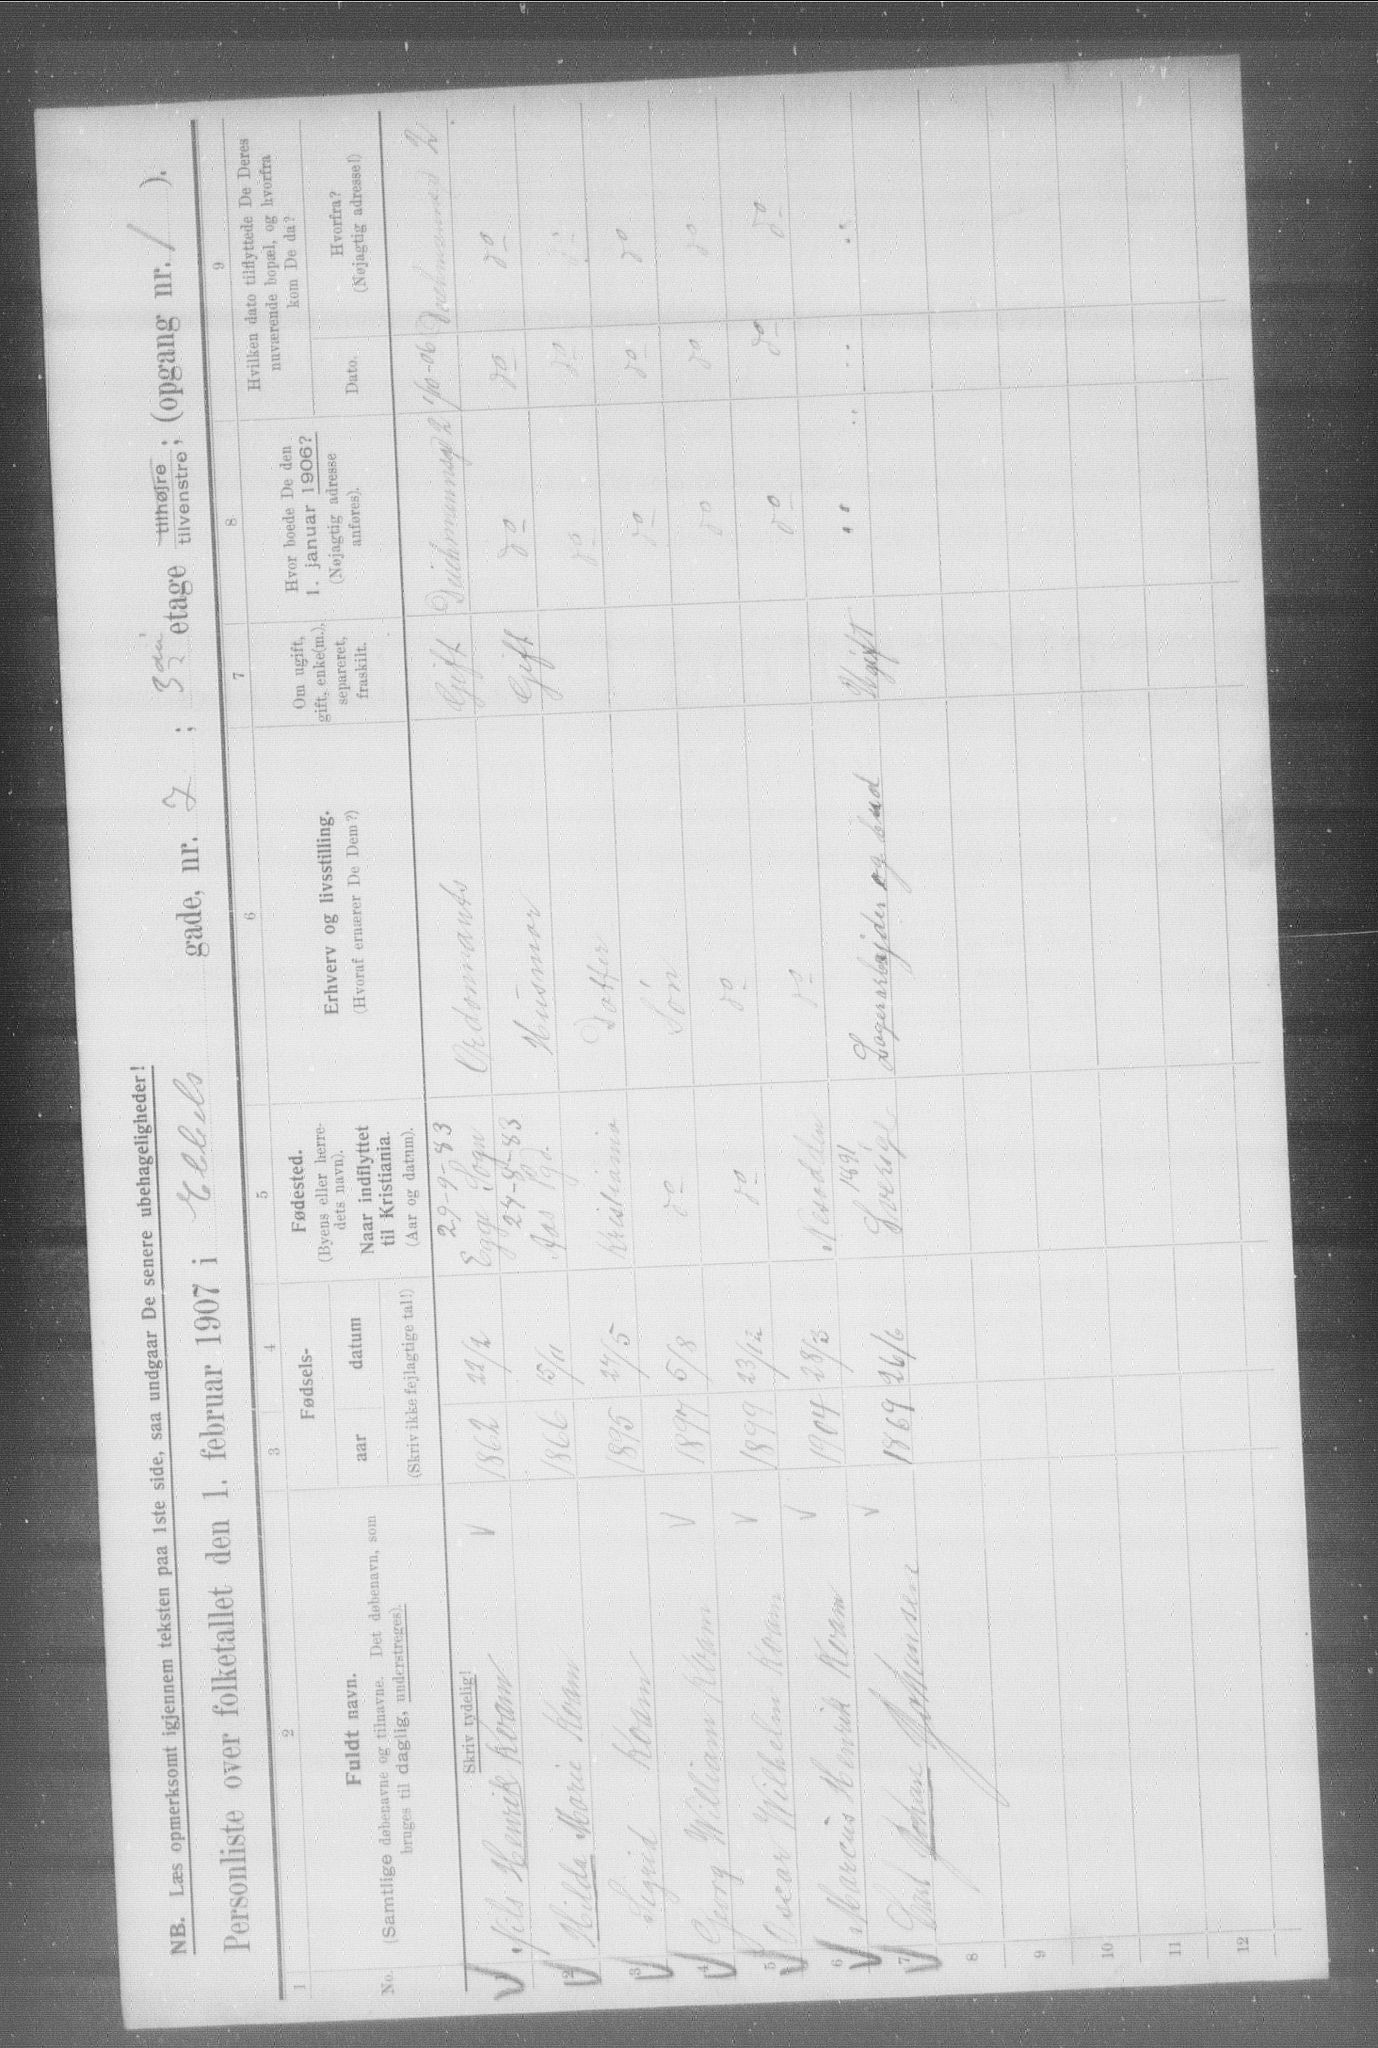 NB. Læs opmerksomt igjennem teksten paa 1ste side, saa undgaar De senere ubehageligheder!
Personliste over folketallet den 1. februar 1907 i Ebbels gade, nr. 7; 3die etage tilhøjre, tilvenstre; (opgang nr. 1).
1 2 3 4 5 6 7 8 9
No.
Fuldt navn.
(Samtlige døbenavne og tilnavne. Det døbenavn, som
bruges til daglig, understreges).
Fødsels-
aar datum
(Skriv ikke fejlagtige tal!)
Fødested.
(Byens eller herre-
dets navn).
Naar indflyttet
til Kristiania.
(Aar og datum).
Erhverv og livsstilling.
(Hvoraf ernærer De Dem?)
Om ugift,
gift, enke(m.),
separeret,
fraskilt.
Hvor boede De den
1. januar 1906?
(Nøjagtig adresse
anføres).
Hvilken dato tilflyttede De Deres
nuværende bopæl, og hvorfra
kom De da?
Dato.
Hvorfra?
(Nøjagtig adresse!)
Skriv tydelig!
29-9-83
1 Nils Henrik Kvam V 1862 22/2 Egge Sogn Gift Deichmannsgd 2 1/10-06 2
24-8-83
2 Hilda Marie Kvam 1866 15/11 Aas Pgd. Husmor Gift do do do
3 Sigrid Kvam 1895 24/5 Kristiania Datter do do do
4 Georg William Kvam V 1897 5/8 do Søn do do do
5 Oscar Wilhelm Kvam V 1899 23/12 do do do do do
6 Marcus Henrik Kvam V 1904 28/3 Nesodden do do do do
7 Johan Johansen V 1869 26/6 Sverige Lagerarbejder og bud Ugift " " "
8
9
10
11
12